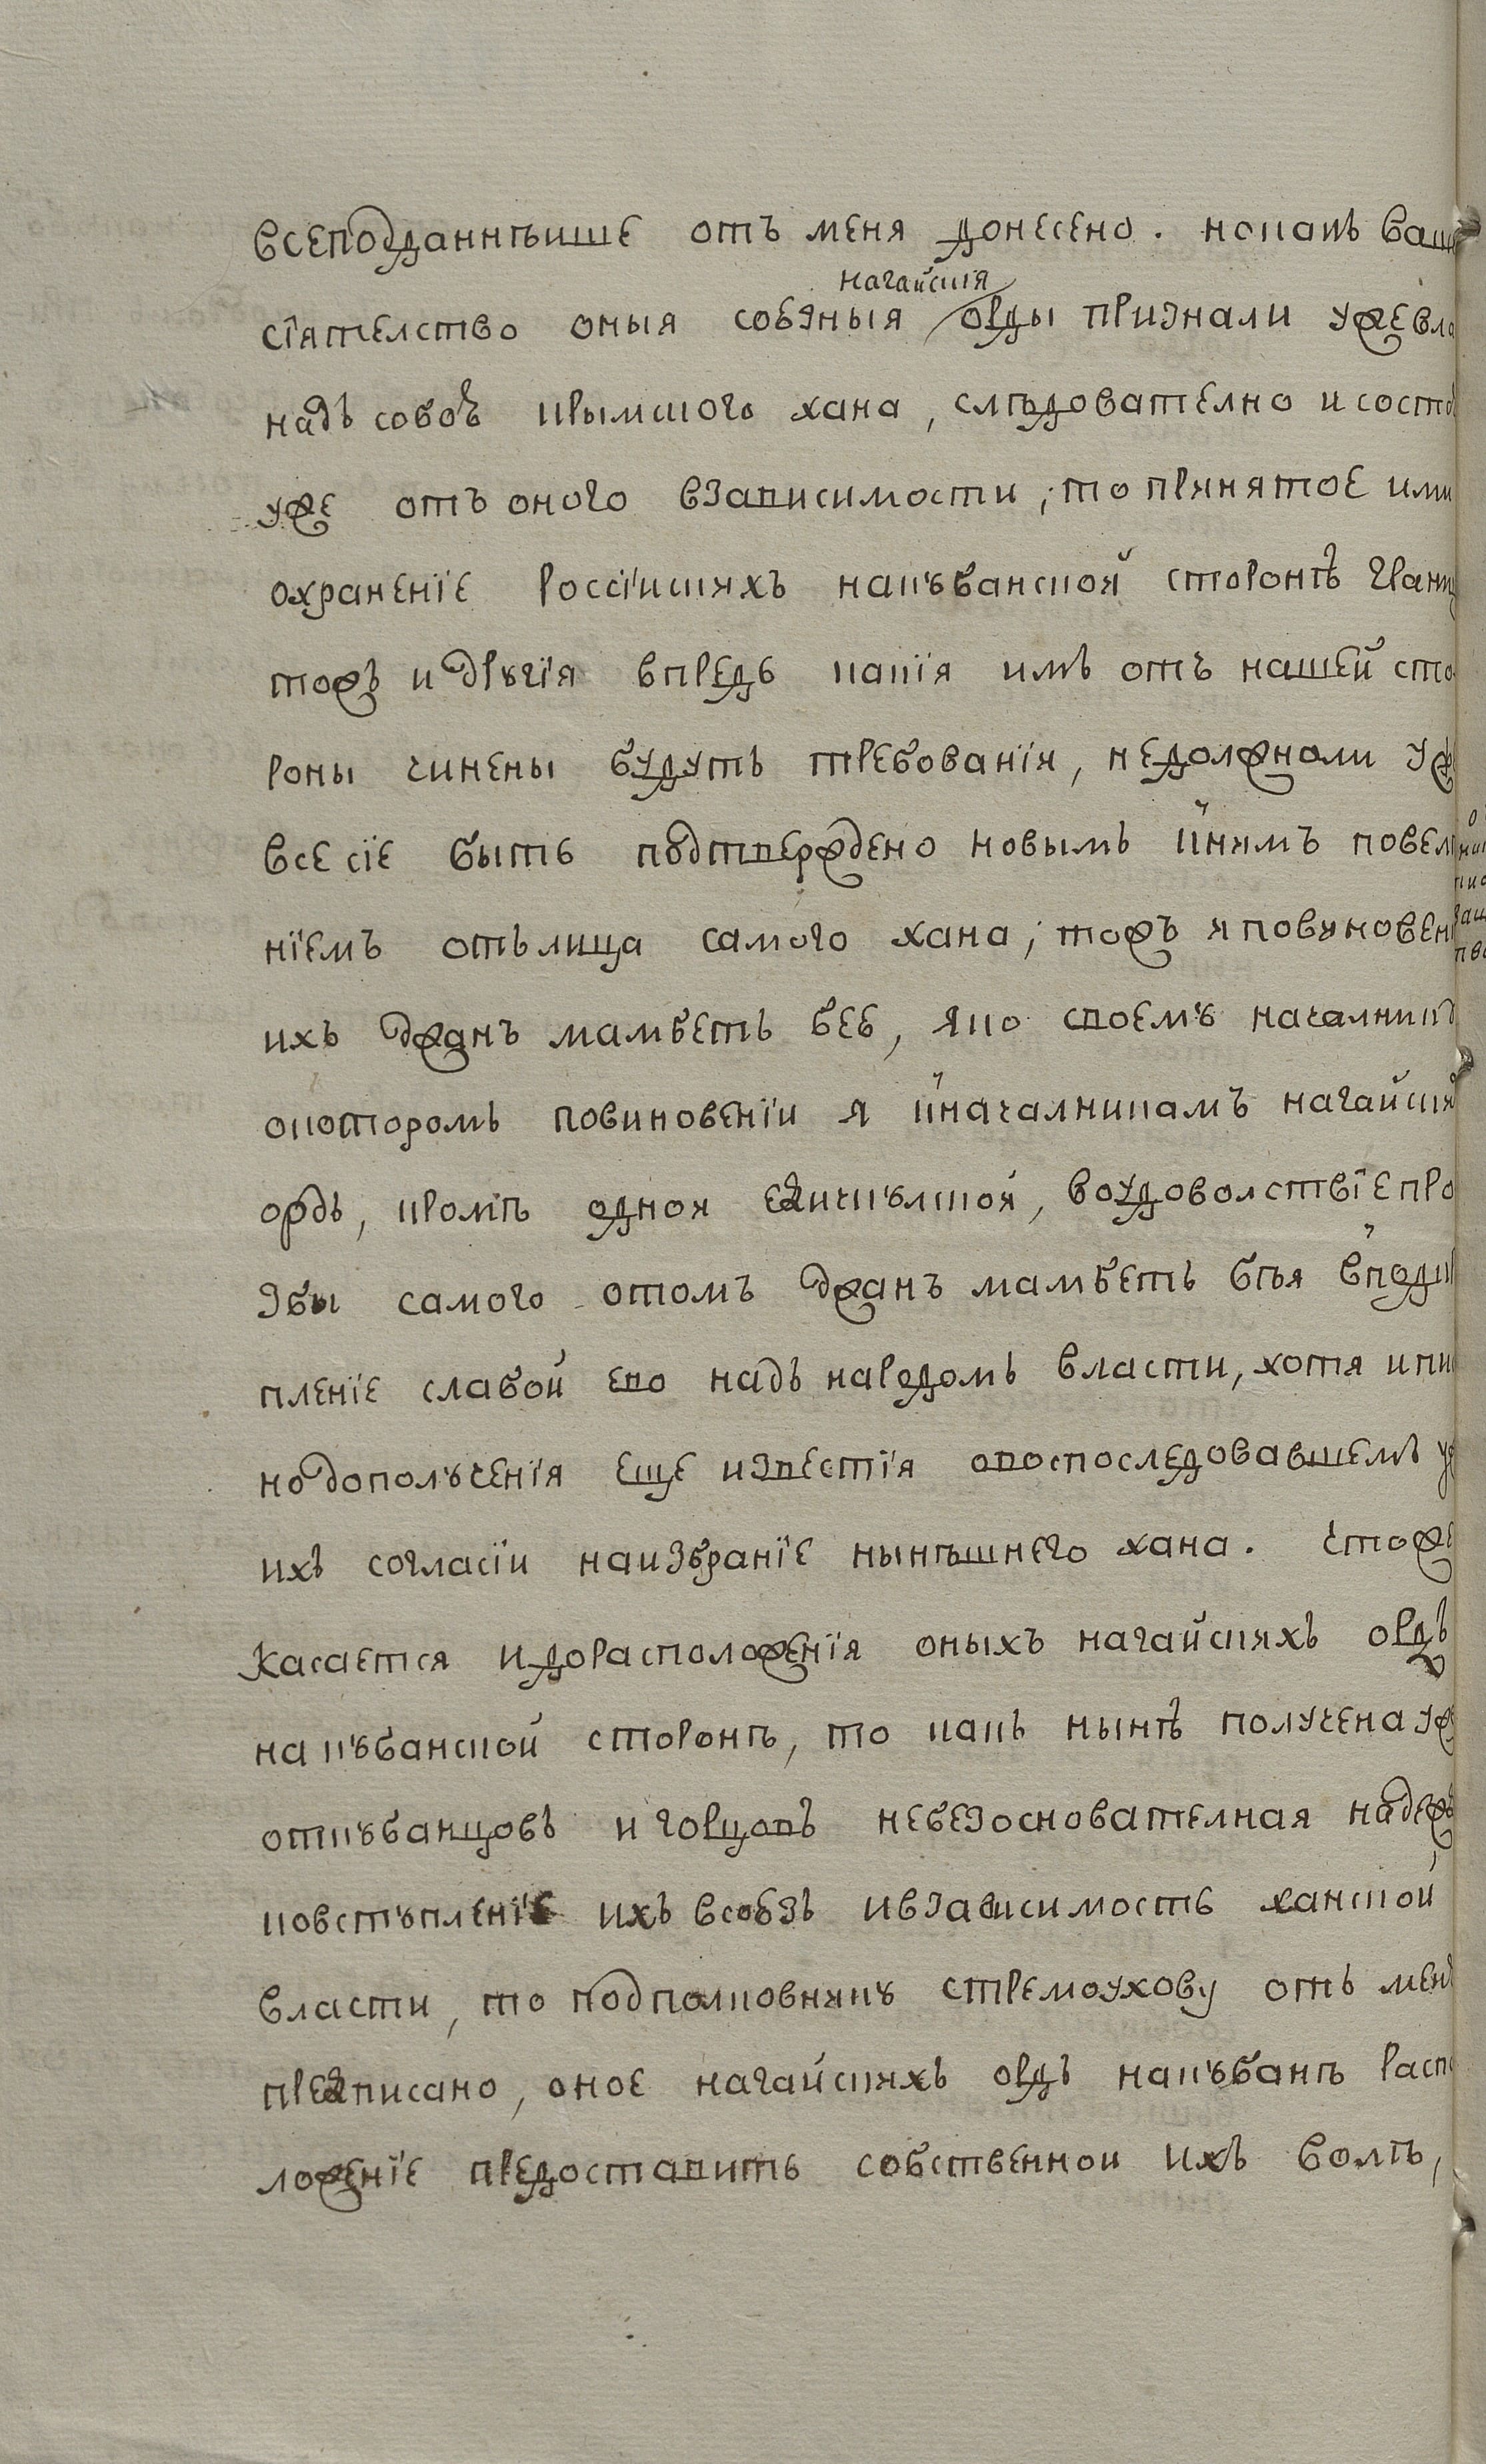 всеподданнѣише отъ меня донесено. нокакъ ваше
нагайския
сіятелство оныя соѳзныя орды признали уже вла
надъ собоѣ крымского хана, слѣдователно и состо
уже отъ оного взависимости; то принятое ими
охраненіе россіискихъ накубанской сторонѣ грани
тожъ и другія впредь какія имъ отъ нашей сто
роны чинены будутъ требованія, недолжноли уже
все сіе быть подтверждено новымъ книмъ повеле
ніемъ отълица самого хана; тожъ и повиновени
ихъ джанъ мамбетъ бею, яко своему началнику
окоторомъ повиновеніи я кначалникамъ нагайски
ордъ, кромѣ одной едичкулской, воудоволствіе про
збы самого отомъ джанъ мамбетъ бѣя вподкрѣ
пленіе слабой его надъ народомъ власти, хотя и пи
но дополученія еще извѣстія опоспоследовавшемъ уже
ихъ согласіи наизбраніе нынѣшнего хана. чтоже
касается и дорасположенія оныхъ нагайскихъ ордъ
на кубанской сторонѣ, то какъ нынѣ получена уже
откубанцовъ и горцовъ небезоснователная надеж
повступленіе ихъ всоюзъ ивзависимость ханской
власти, то подполковнику стремоухову отъ меня
предписано, оное нагайскихъ ордъ накубанѣ распо
ложеніе предоставить собственной ихъ волѣ,